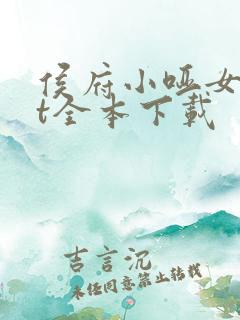 侯府小哑女
t全本下载
吉言沉
未经同意禁止转载